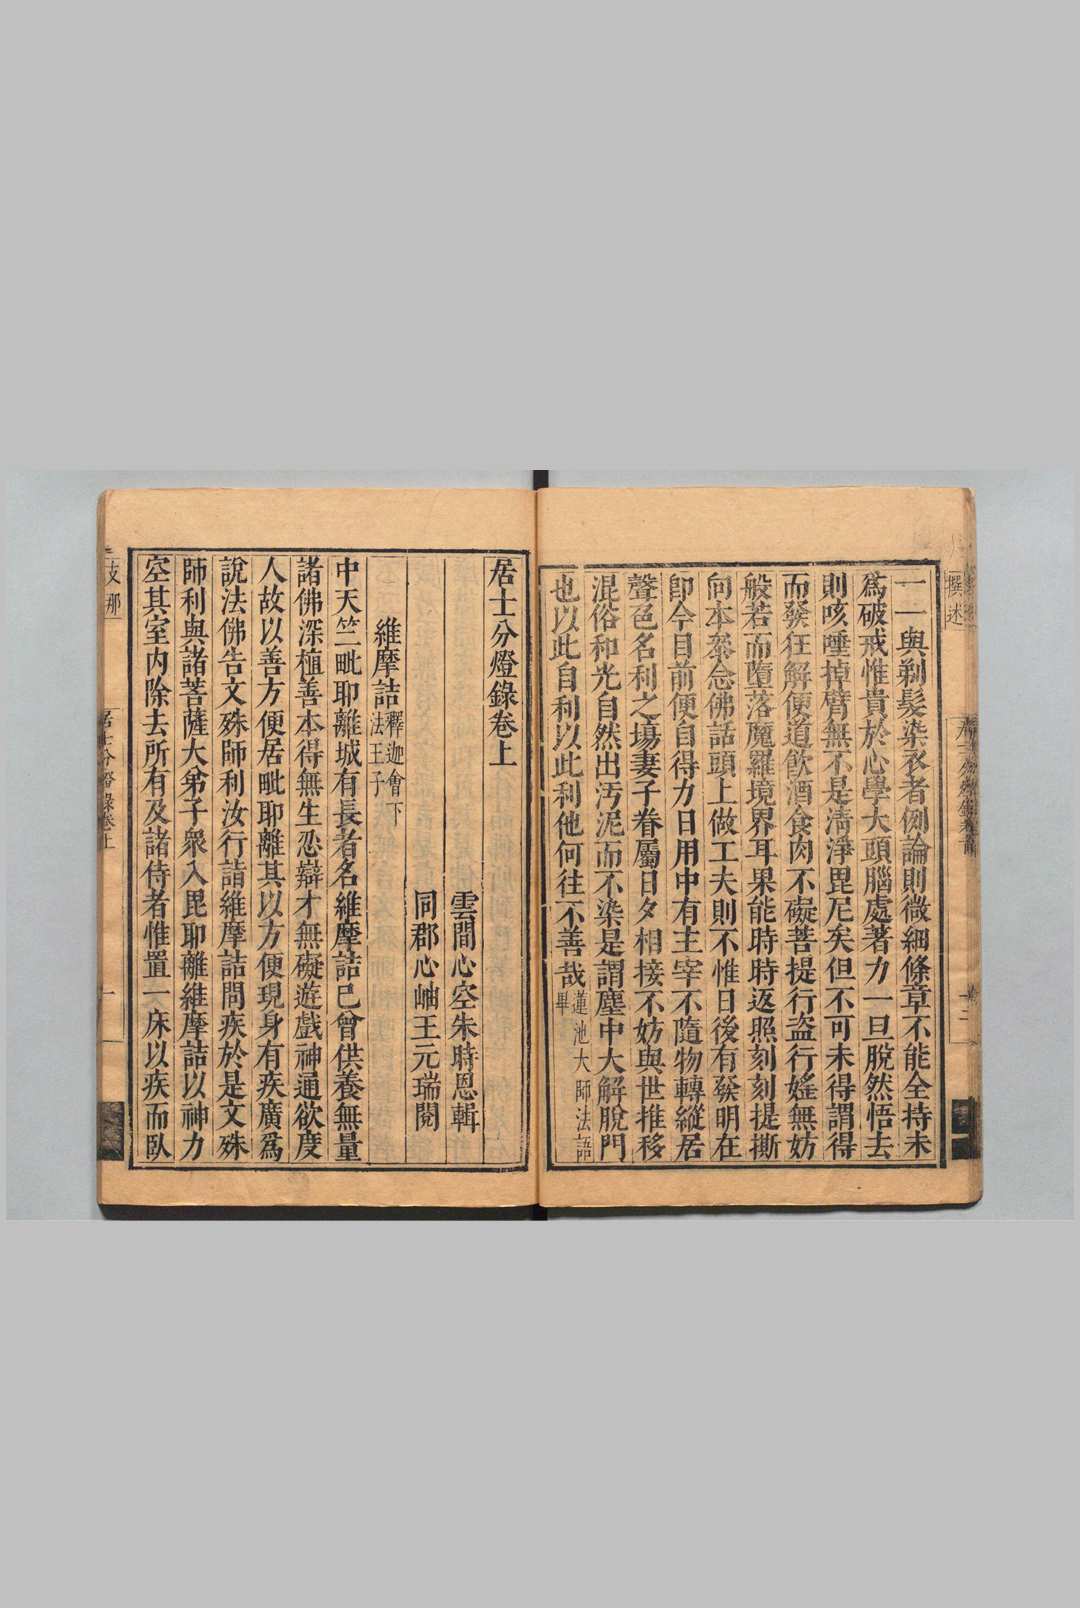 一一與剃髮染衣者例論則微細條章不能全持未
爲破戒惟貴於心學大頭腦處著力一旦脫然悟去
則咳唾掉臂無不是清淨毘尼矣但不可未得謂得
而發狂解便道飲酒食肉不礙菩提行盜行婬無妨
般若而墮落魔羅境界耳果能時時返照刻刻提撕
向本叅念佛話頭上做工夫則不惟日後有發明在
卽今目前便自得力日用中有主宰不隨物轉縱居
聲色名利之場妻子眷屬日夕相接不妨與世推移
混俗和光自然出汚泥而不染是謂塵中大解脫門
也以此自利以此利他何往不善哉蓮池大師法語畢
居士分燈錄卷上
雲間心空朱時恩輯
同郡心岫王元瑞閱
維摩詰釋迦會下法王子
中天竺毗耶離城有長者名維摩詰已曾供養無量
諸佛深植善本得無生忍辯才無礙遊戲神通欲度
人故以善方便居毗耶離其以方便現身有疾廣爲
說法佛告文殊師利汝行詣維摩詰問疾於是文殊
師利與諸菩薩大弟子衆入毘耶離維摩詰以神力
空其室內除去所有及諸侍者惟置一床以疾而臥
支那
居士分燈錄卷上
一
撰述